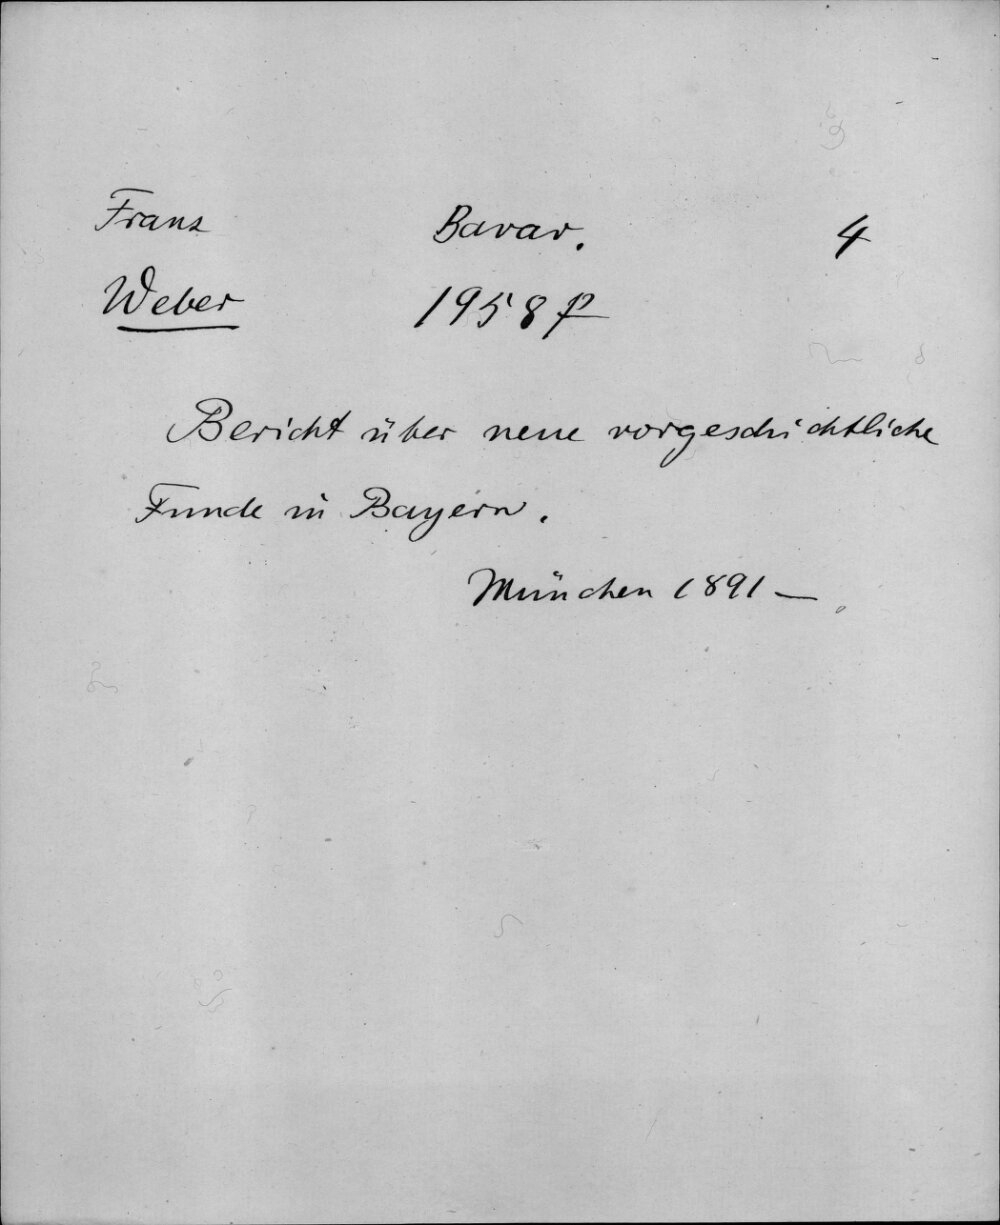 Franz Bavar. 4
Weber 1958 p
Bericht über neue vorgeschichtliche
Funde in Bayern.
München 1891 —